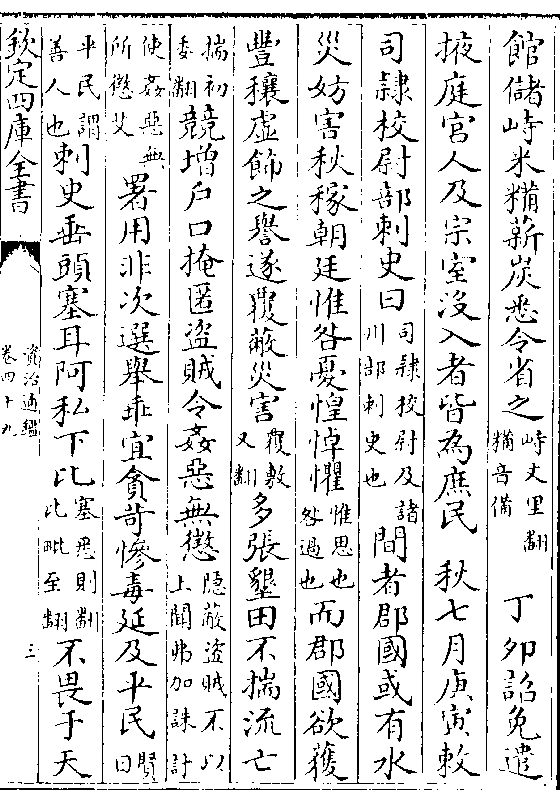 館儲峙米糒薪炭悉令省之峙丈里翻糒音備 丁卯詔免遣
掖庭宫人及宗室沒入者皆為庶民 秋七月庚寅敕
司隸校尉部刺史曰司隸校尉及諸州部刺史也間者郡國或有水
災妨害秋稼朝廷惟咎憂惶悼懼惟思也咎過也而郡國欲獲
豐穰虛飾之譽遂覆蔽災害覆敷又翻多張墾田不揣流亡
揣初委翻競增戶口掩匿盜賊令姦惡無懲隱蔽盜賊不以上聞弗加誅討
使姦惡無所懲艾署用非次選舉乖宜貪苛慘毒延及平民賢曰
平民謂善人也刺史垂頭塞耳阿私下比塞悉則翻比毗至翻不畏于天
欽定四庫全書 資治通鑑卷四十九 三